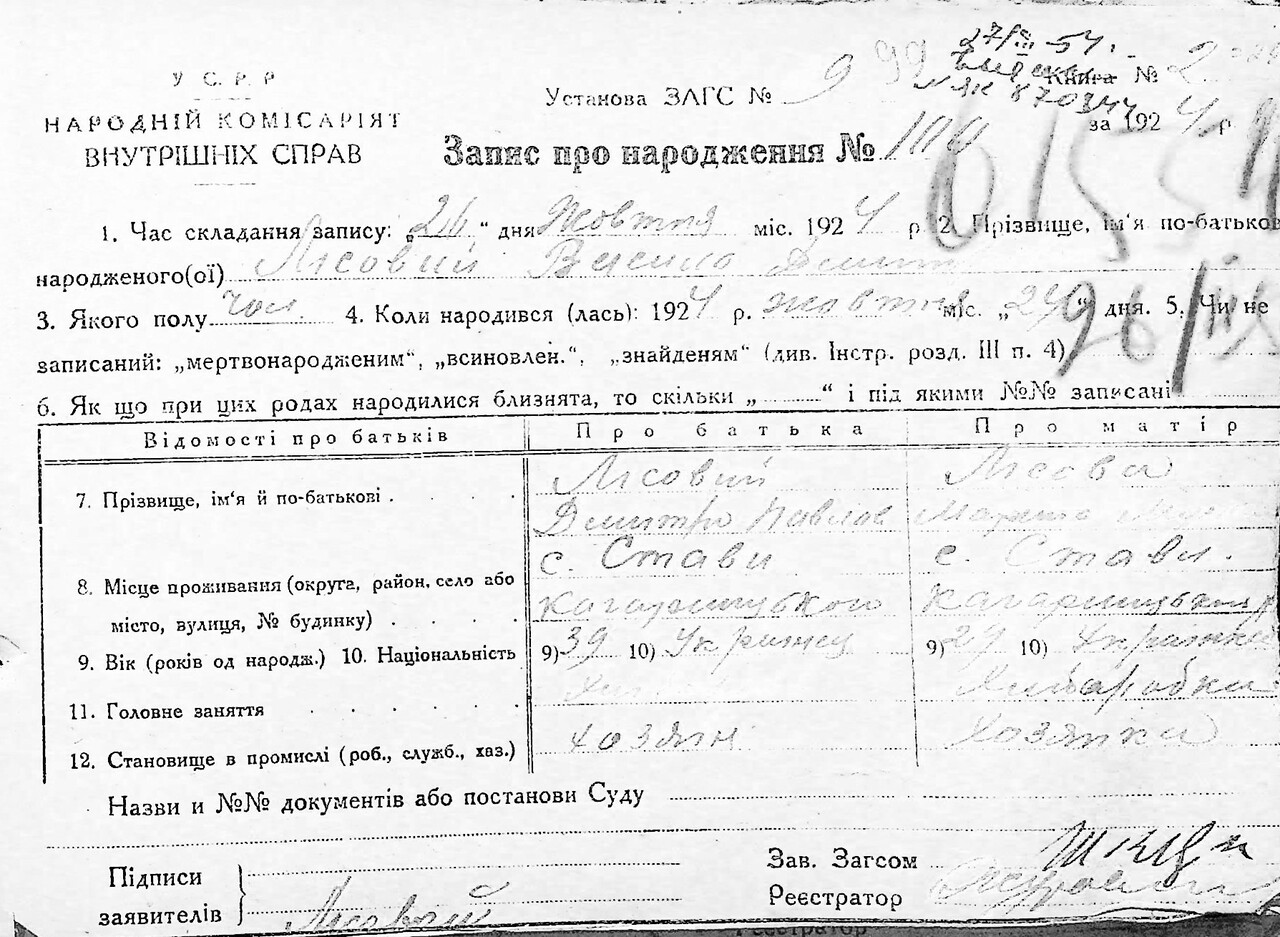 У С. Р. Р
НАРОДНІЙ КОМІСАРІЯТ
ВНУТРІШНІХ СПРАВ
27/III-54.
Установа ЗАГС № 999 Книга № 2
ЯК 870344
за 1924 р.
Запис про народження № 100
1. Час складання запису: „26“ дня Жовтня міс. 1924 р. 2. Прізвище, ім'я по-батькові
народженого(ої) Лісовий Дмит
3. Якого полу чол. 4. Коли народився (лась): 1924 р. жовтня міс. „24“ дня. 5. Чи не
записаний: „мертвонародженим“, „всиновлен.“, „знайденям“ (див. Інстр. розд. III п. 4)
6. Як що при цих родах народилися близнята, то скільки „ “ і під якими №№ записані
Відомості про батьків Про батька Про матір
7. Прізвище, ім'я й по-батькові . . . . Лісовий Лісова
Дмитро Павлов
8. Місце проживання (округа, район, село або с. Стави с. Стави.
місто, вулиця, № будинку) . . . . Кагарлицької Кагарлицької р
9. Вік (років од народж.) 10. Національність 9) 39 10) Українец 9) 29 10) Українка
11. Головне заняття . . . . . Хліборобка
12. Становище в промислі (роб., служб., хаз.) хозяин хозяйка
Назви и №№ документів або постанови Суду
Підписи
заявителів Лісовый
Зав. Загсом
Реєстратор